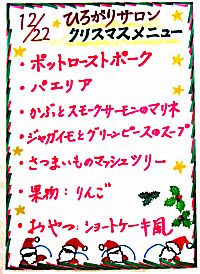 12/22 ひろがりサロン
クリスマスメニュー
・ポットローストポーク
・パエリア
・かぶとスモークサーモンのマリネ
・ジャガイモとグリーンピースのスープ
・さつまいものマッシュツリー
・果物：りんご
・おやつ：ショートケーキ風